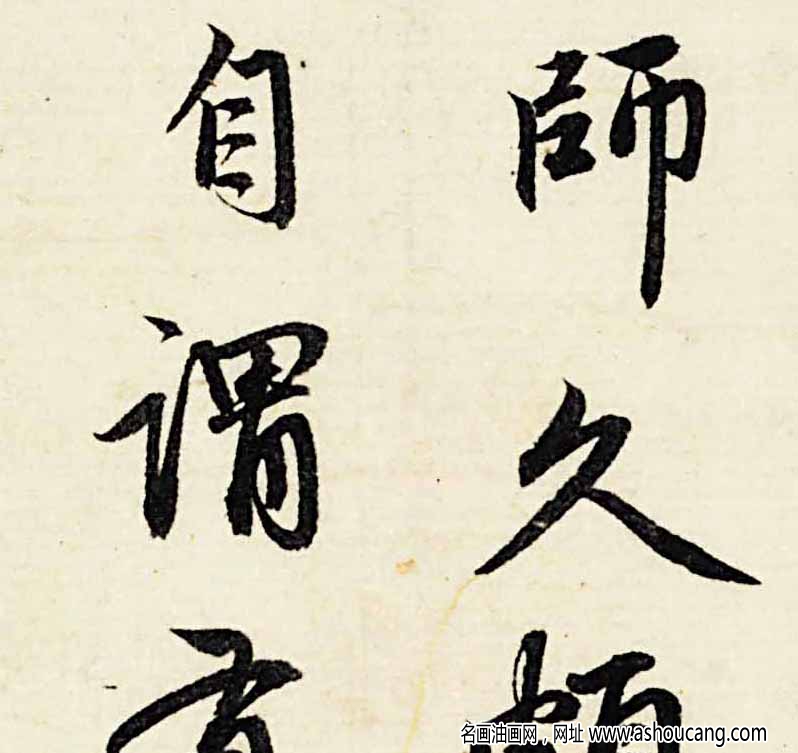 師久
自謂
名画油画网，网址 www.ashoucang.com